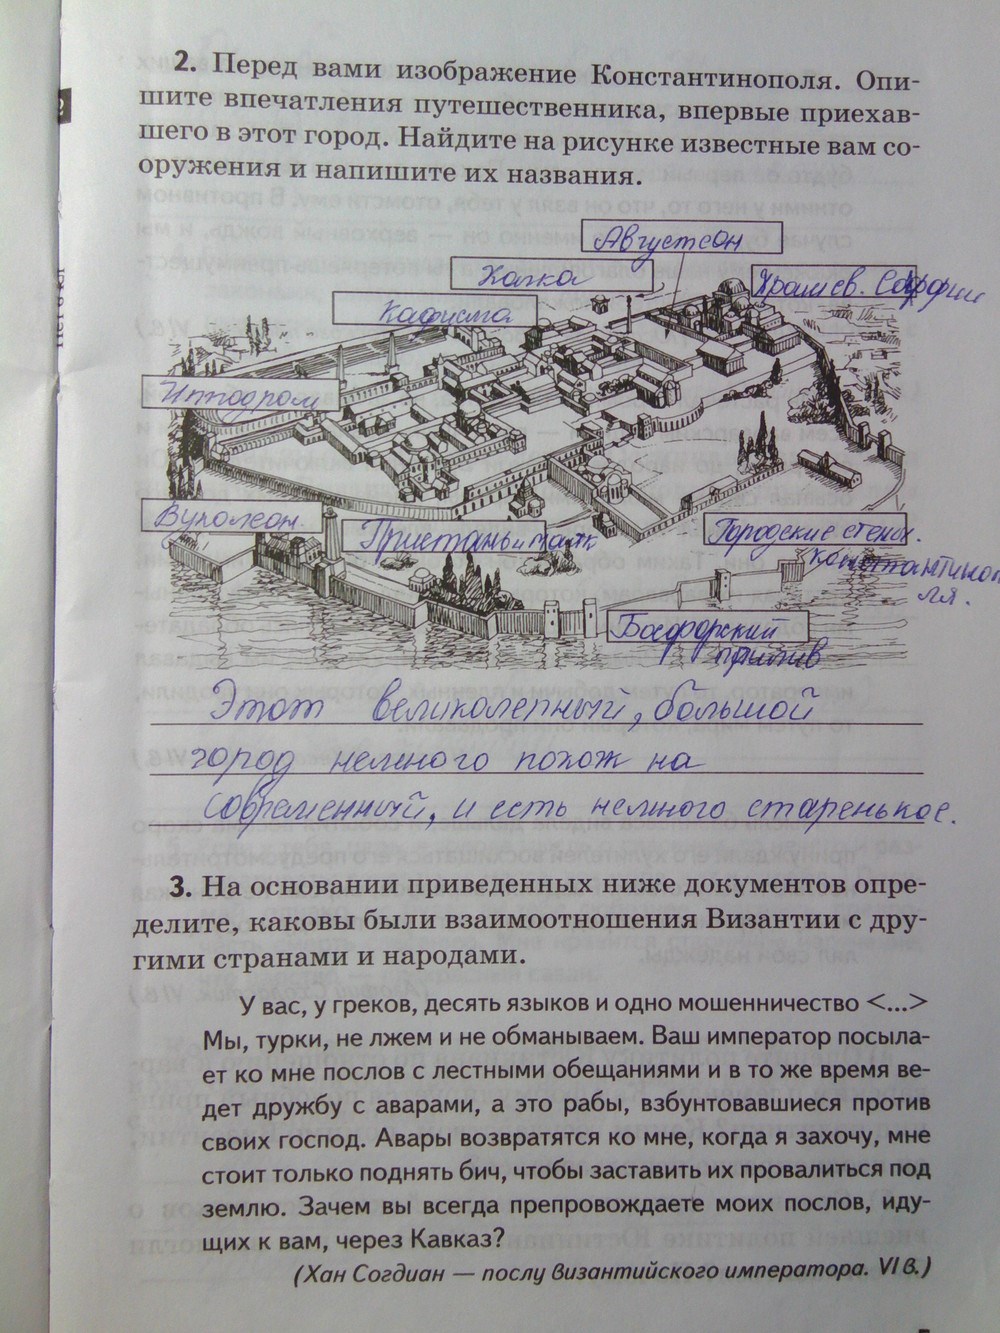 2. Перед вами изображение Константинополя. Опи-
шите впечатления путешественника, впервые приехав-
шего в этот город. Найдите на рисунке известные вам со-
оружения и напишите их названия.
Августеон
Халка
Храм св. Софии
Кафисма
Ипподром
Вуколеон.
Пристань и маяк
Городские стены.
константинополя.
Босфорский
пролив
Этот великолепный, большой
город немного похож на
современный, и есть немного старенькое.
3. На основании приведенных ниже документов опре-
делите, каковы были взаимоотношения Византии с дру-
гими странами и народами.
У вас, у греков, десять языков и одно мошенничество <...>
Мы, турки, не лжем и не обманываем. Ваш император посыла-
ет ко мне послов с лестными обещаниями и в то же время ве-
дет дружбу с аварами, а это рабы, взбунтовавшиеся против
своих господ. Авары возвратятся ко мне, когда я захочу, мне
стоит только поднять бич, чтобы заставить их провалиться под
землю. Зачем вы всегда препровождаете моих послов, иду-
щих к вам, через Кавказ?
(Хан Согдиан — послу византийского императора. VI в.)